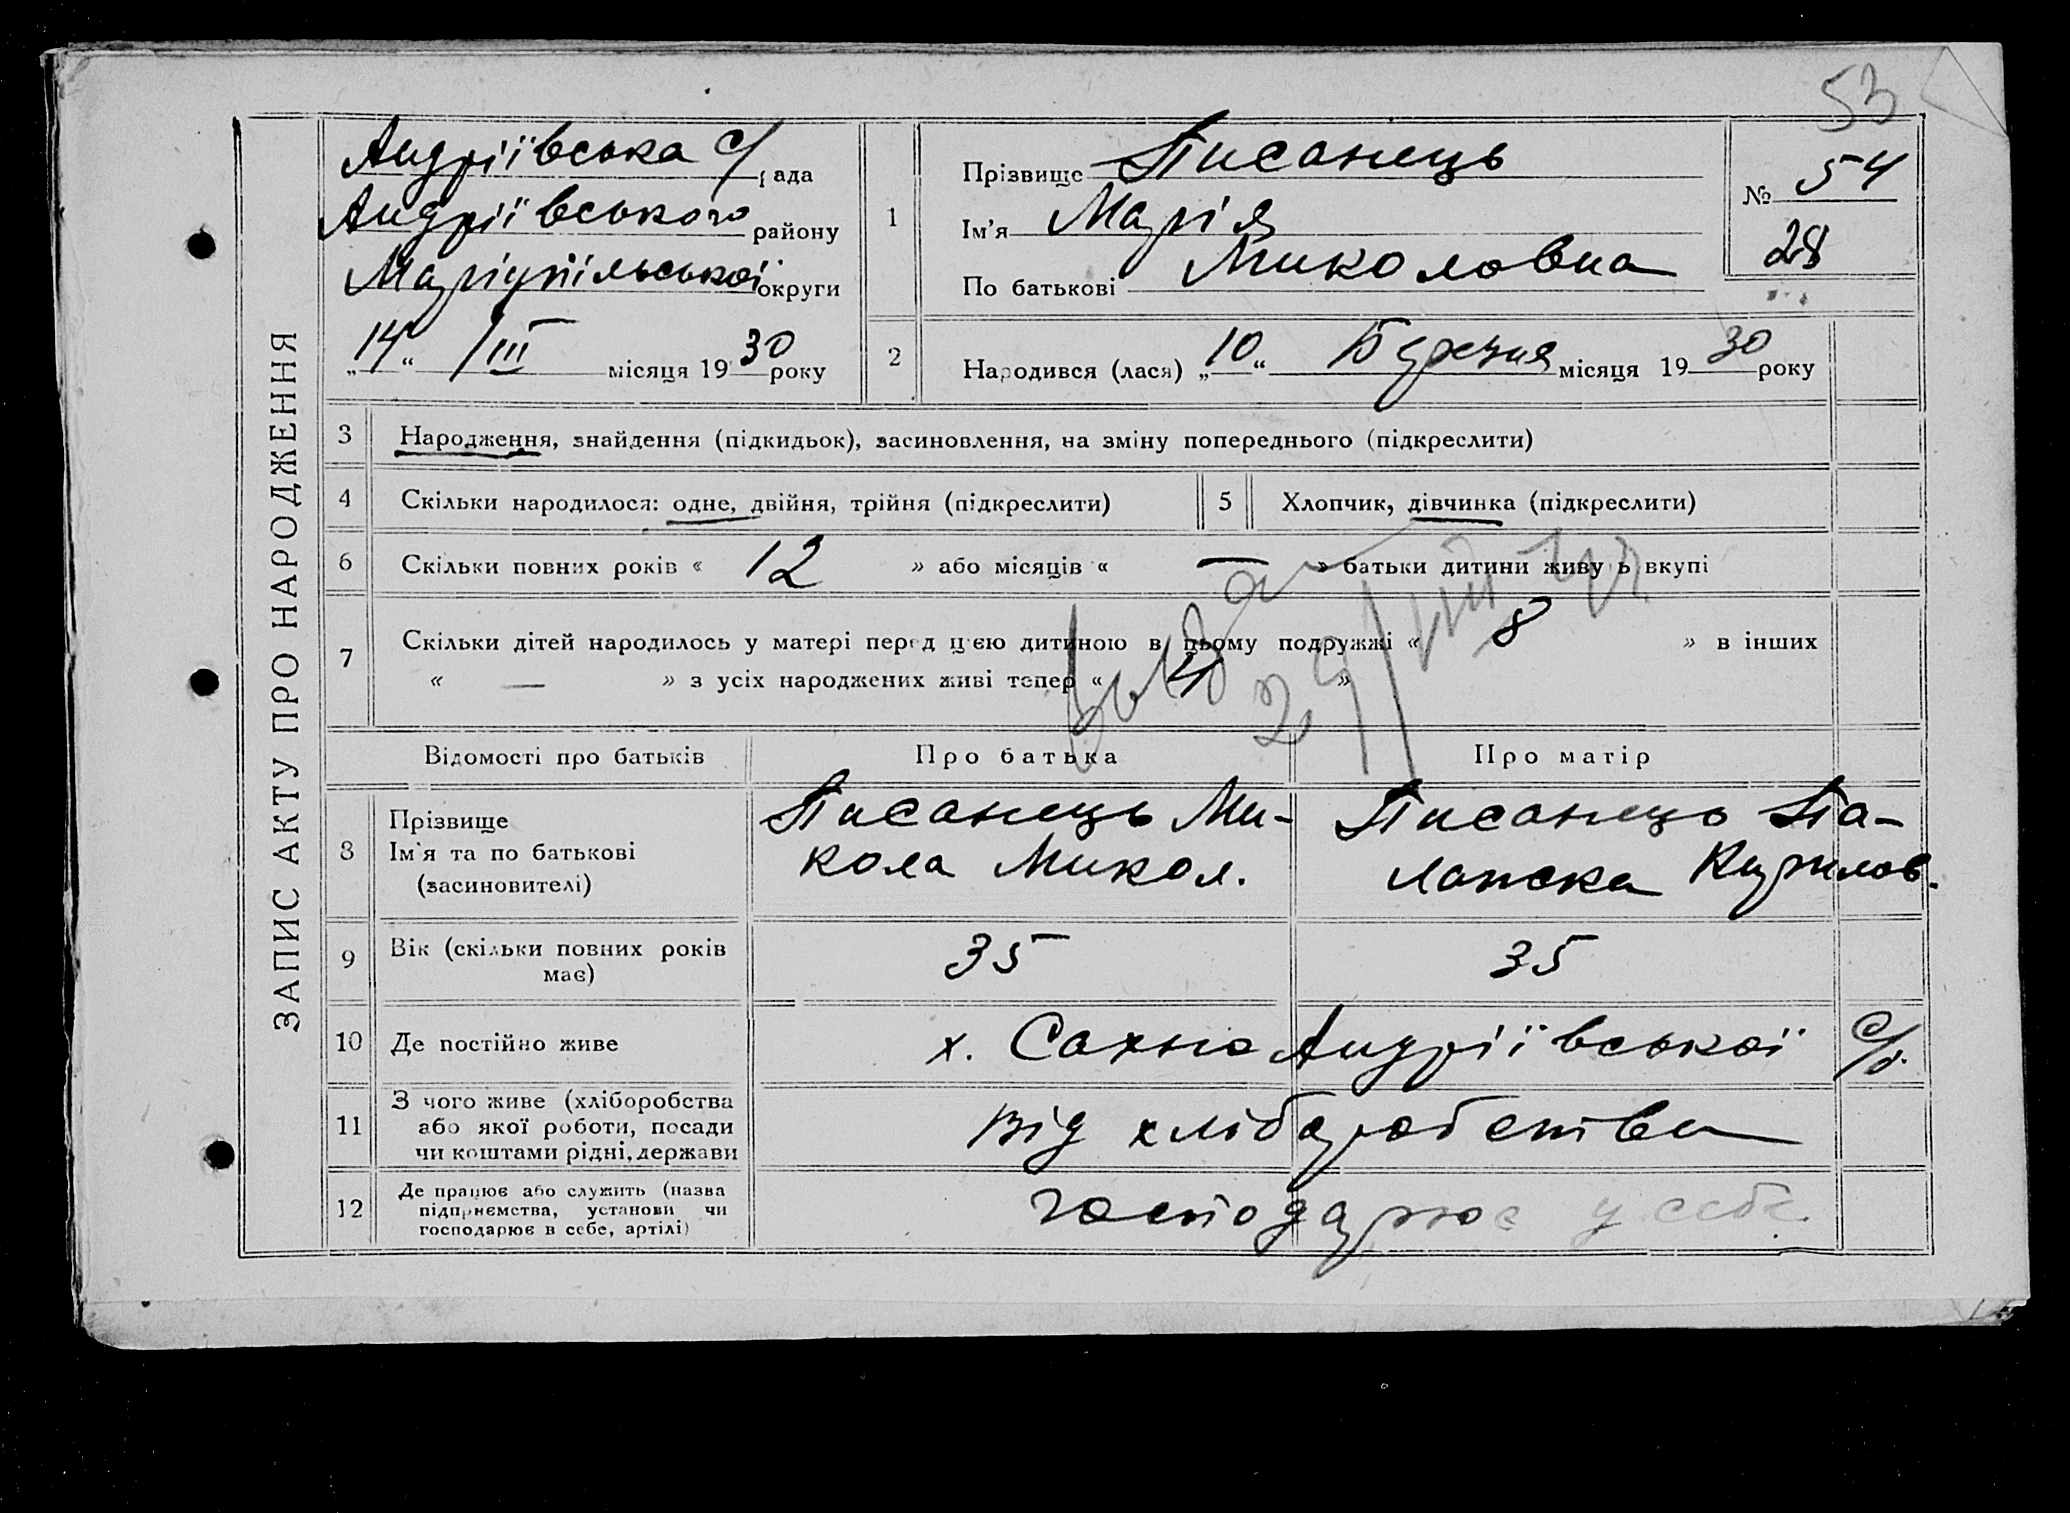 53
ЗАПИС АКТУ ПРО НАРОДЖЕННЯ
Андріївська с/рада
Андріївського району
Маріупільської округи
„14“ /III місяця 1930 року
1
Прізвище Писанець
Ім'я Марія
По батькові Миколовна
№ 54
28
2
Народився (лася) „10“ Березня місяця 1930 року
3 Народження, знайдення (підкидьок), засиновлення, на зміну попереднього (підкреслити)
4 Скільки народилося: одне, двійня, трійня (підкреслити)
5 Хлопчик, дівчинка (підкреслити)
6 Скільки повних років « 12 » або місяців « — » батьки дитини живуть вкупі
7 Скільки дітей народилось у матері перед цією дитиною в цьому подружжі « 8 » в інших
« — » з усіх народжених живі тепер « 4 »
29/VIII
Відомості про батьків Про батька Про матір
8
Прізвище
Ім'я та по батькові
(засиновителі)
Писанець Ми-
кола Микол.
Писанець Па-
лажка Кирилов.
9 Вік (скільки повних років
має)
35
35
10 Де постійно живе х. Сахно Андріївської с/р.
11 З чого живе (хліборобства
або якої роботи, посади
чи коштами рідні, держави
від хліборобства
12 Де працює або служить (назва
підприємства, установи чи
господарює в себе, артілі)
господарює у себе.